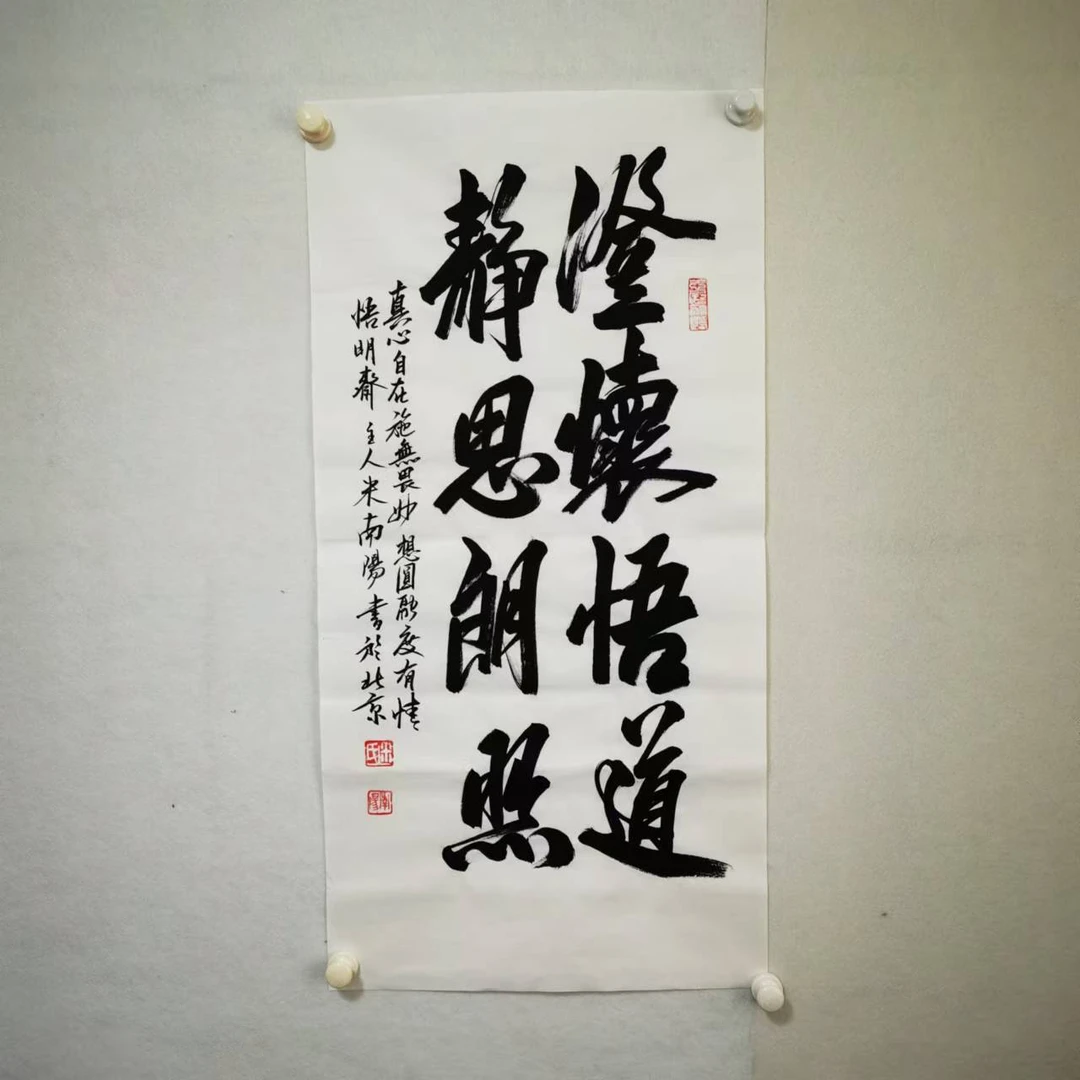 澄懷悟道
靜思朗照
真心自在施無畏妙想圓融度有情
悟明齋主人米南陽書於北京
米氏
南陽